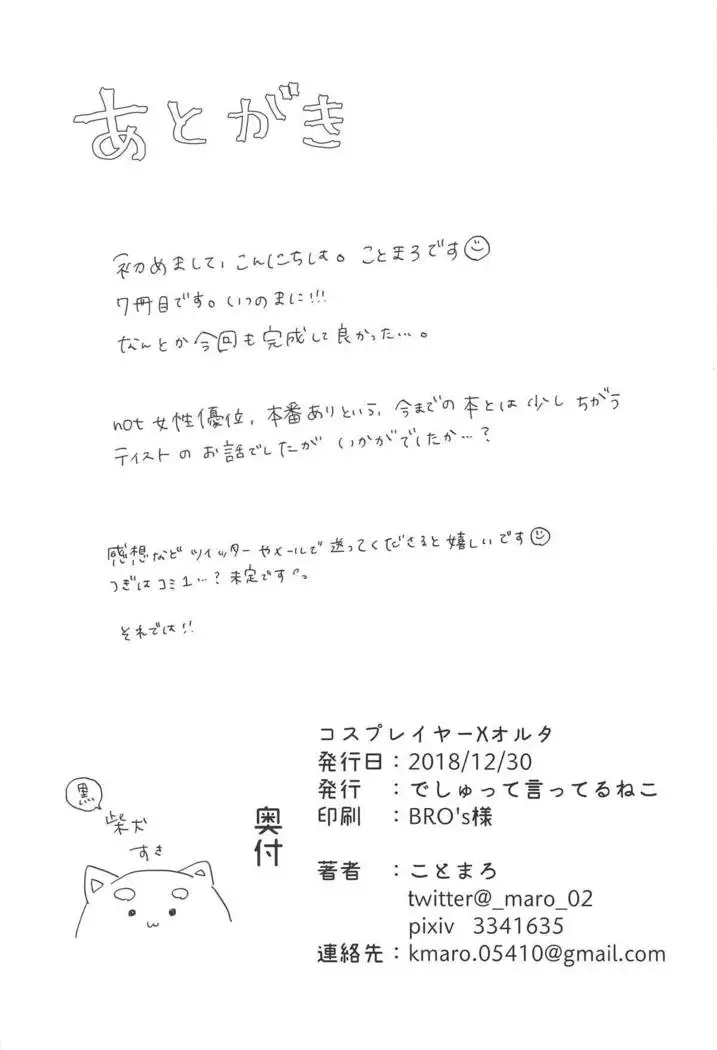 あとがき
初めまして、こんにちは。ことまろです
7冊目です。いつのまに!!!
なんとか今回も完成して良かった…。
not 女性優位、本番ありという、今までの本とは少しちがう
テイストのお話でしたがいかがでしたか…?
感想などツイッターやメールで送ってくださると嬉しいです
つぎはコミ1…?未定です
それでは!!
黒
柴犬
すき
奥付
コスプレイヤーXオルタ
発行日:2018/12/30
発行 :でしゅって言ってるねこ
印刷 :BRO's様
著者 :ことまろ
twitter@_maro_02
pixiv 3341635
連絡先:kmaro.05410@gmail.com